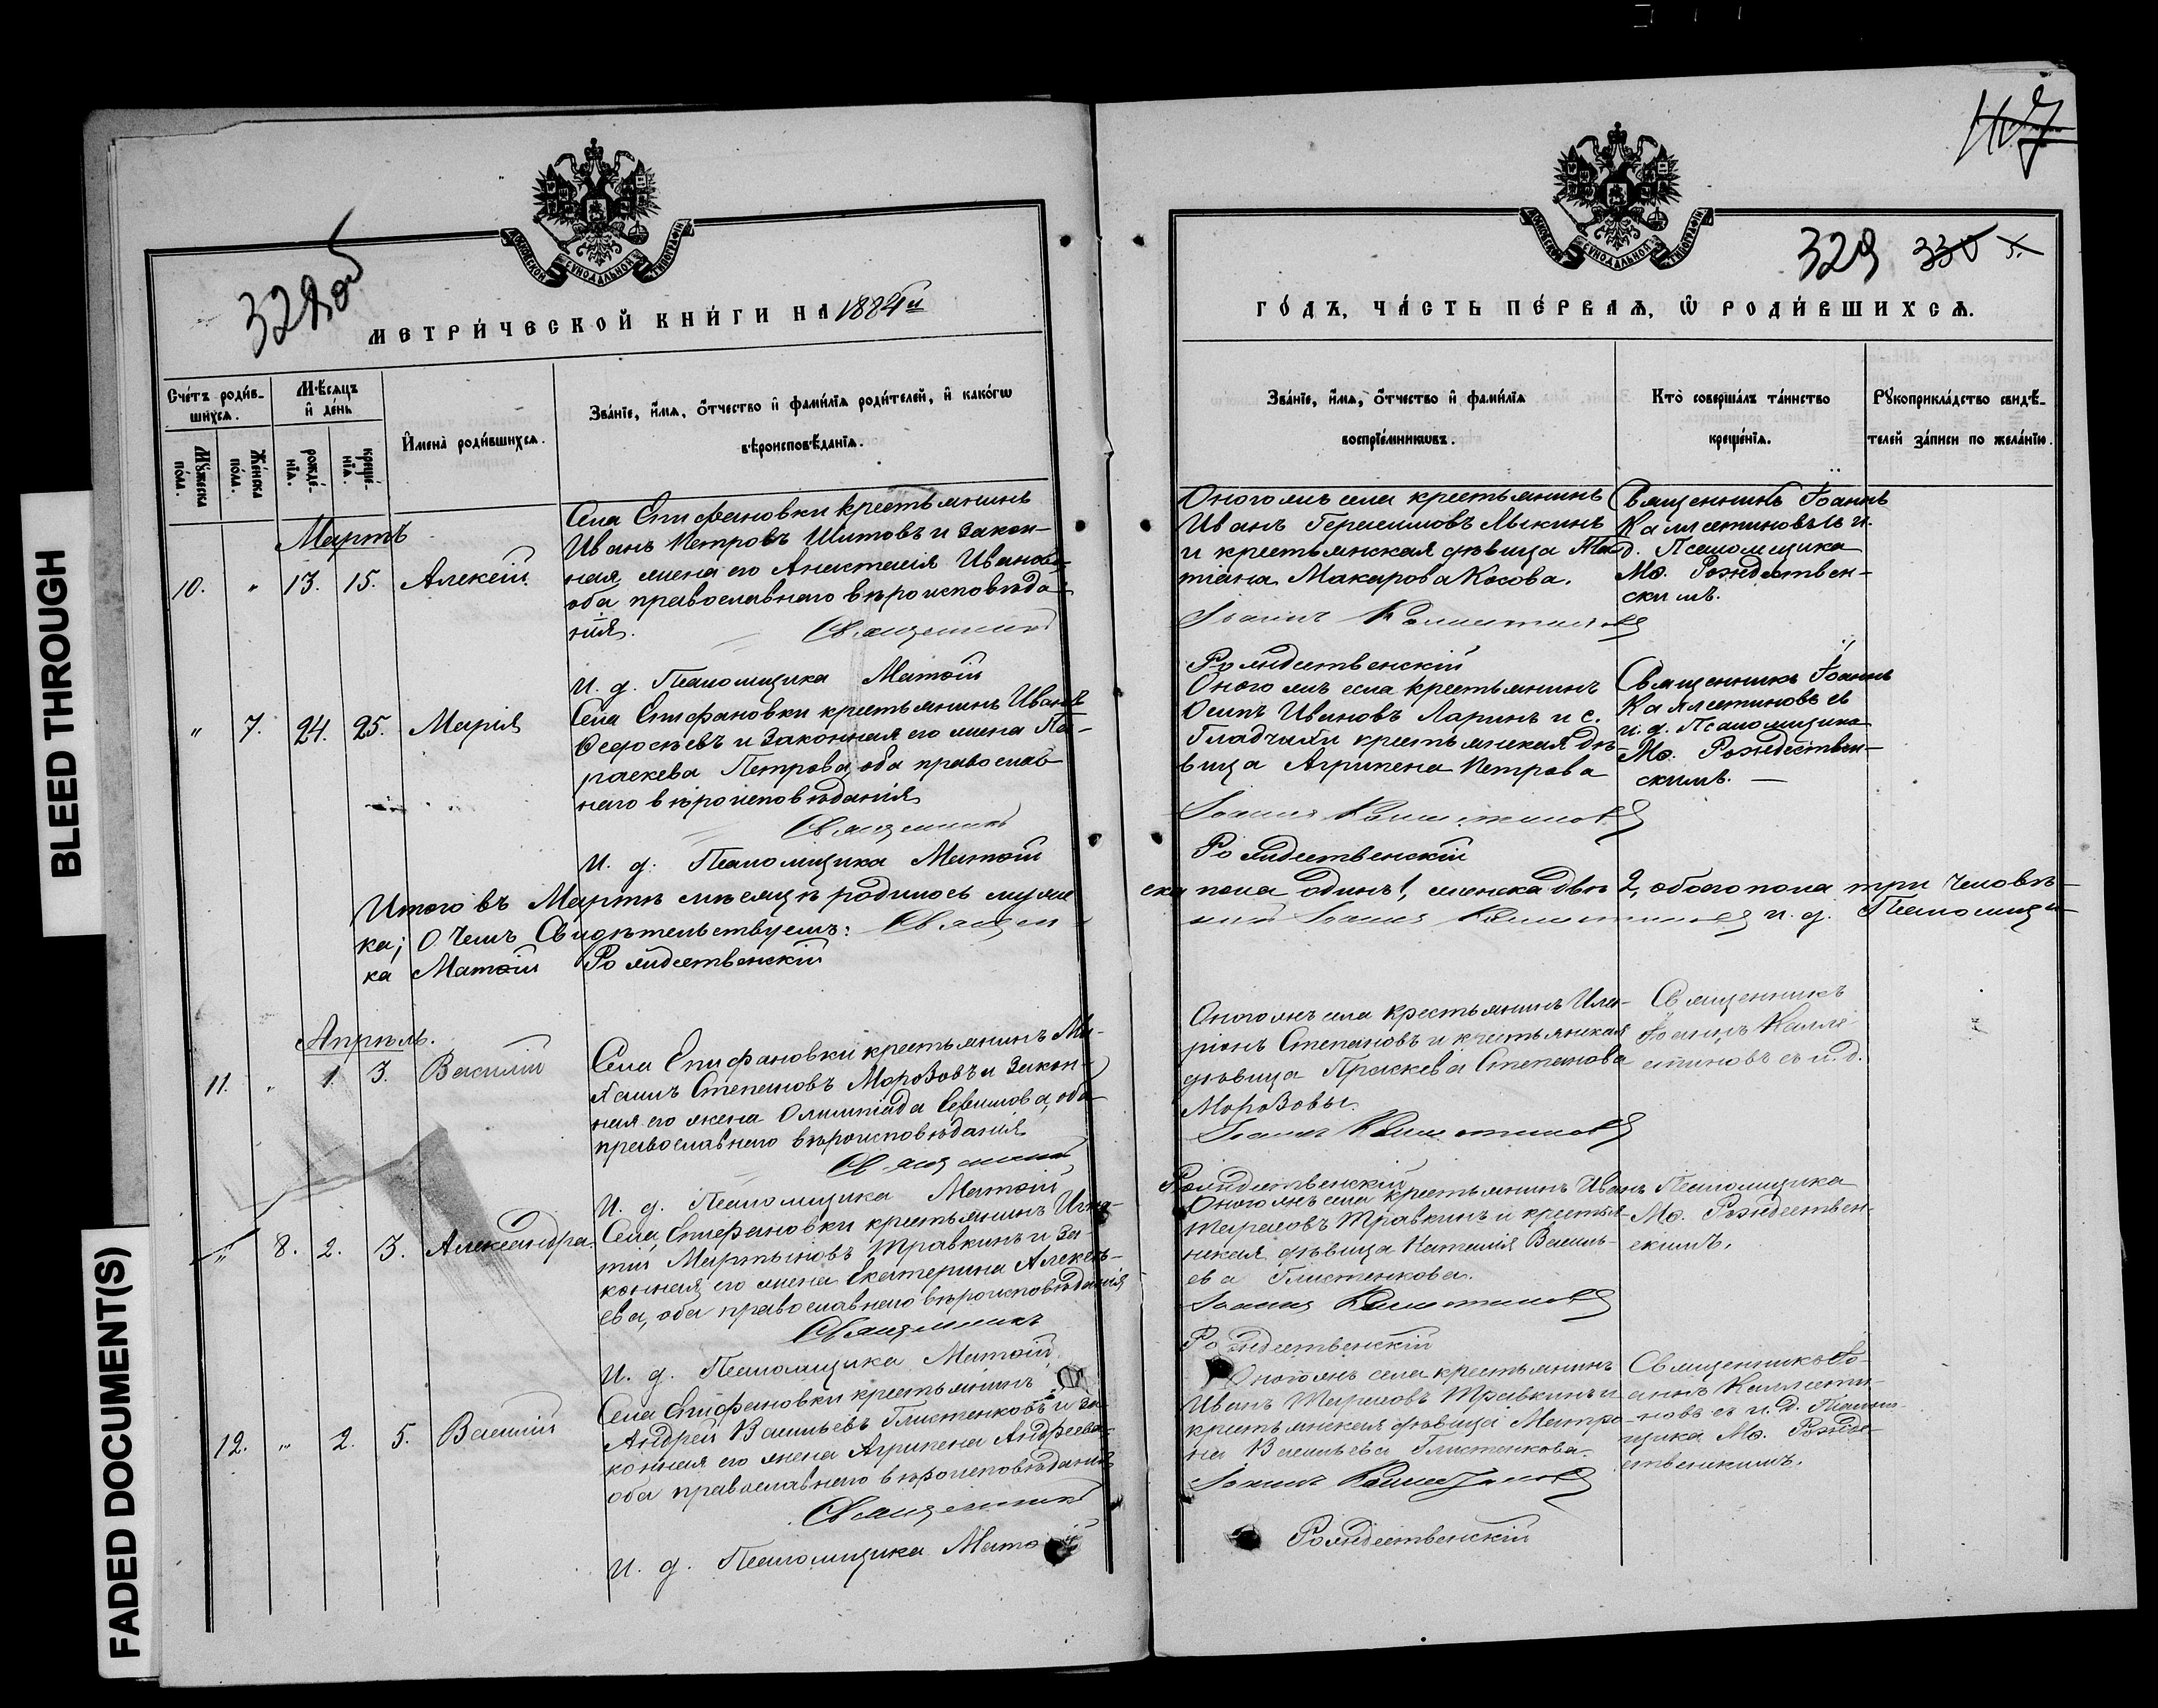 BLEED THROUGH
FADED DOCUMENT(S)
328об
МЕТРИ́ЧЕСКОЙ КНИ́ГИ НА 1884й
Сче́тъ роди́в-
шихся.
Му́жеска
по́ла.
Же́нска
по́ла.
Мѣ́сяцъ
и де́нь
рожде́-
нїя.
креще́-
нїя.
Имена̀ роди́вшихся.
Зва́нїе, и́мя, о́тчество и фами́лїя роди́телей, и како́гѡ
вѣроисповѣ́данїя.
Мартъ
10. " 13. 15. Алексій
Села Епифановки крестьянинъ
Иванъ Петровъ Шитовъ и закон-
ная жена его Анастасія Иванова
оба православнаго вѣроисповѣда-
нія.
Священникъ
И. д. Псаломщика Матѳій
" 7. 24. 25. Марія
Села Епифановки крестьянинъ Иванъ
Ѳедосѣевъ и законная его жена Па-
раскева Петрова, оба православ
наго вѣроисповѣданія
Священникъ
И. д. Псаломщика Матѳій
Итого въ Мартѣ мѣсяцѣ родилось муже
ка; О чемъ Свидѣтельствуемъ: Священ
ка Матѳій Рождественскій
Апрѣль.
11. " 1. 3. Василій
Села Епифановки крестьянинъ Ми-
хаилъ Степановъ Морозовъ и закон-
ная его жена Олимпіада Ефимова, оба
православнаго вѣроисповѣданія
Священникъ
И. д. Псаломщика Матѳій
" 8. 2. 3. Александра.
Села Епифановки крестьянинъ Игна-
тій Мартыновъ Травкинъ и за-
конная его жена Екатерина Алексѣ-
ева, оба православнаго вѣроисповѣданія
Священникъ
И. д. Псаломщика Матѳій
12. " 2. 5. Василій
Села Епифановки крестьянинъ
Андрей Васильевъ Глистенковъ и за-
конная его жена Агрипена Андреева
оба православнаго вѣроисповѣданія
Священникъ
И. д. Псаломщика Матѳ
329 330
ГО́ДЪ, ЧА́СТЬ ПЕ́РВАЯ, Ѡ РОДИ́ВШИХСЯ.
Зва́нїе, и́мя, о́тчество и фами́лїя
воспрїе́мникѡвъ.
Кто̀ соверша́лъ та́инство
креще́нїя.
Рꙋкоприкла́дство свидѣ́-
телей за́писи по жела́нїю.
Оногожъ села крестьянинъ
Иванъ Герасимовъ Лыкинъ
и крестьянская дѣвица Та-
тіана Макарова Косова.
Іоаннъ Каллистиновъ
Священникъ Іоаннъ
Каллистиновъ съ и.
д. Псаломщика
Мѳ. Рождествен-
скимъ.
Рождественскій
Оногожъ села крестьянинъ
Осипъ Ивановъ Ларинъ и с.
крестьянская дѣ-
вица Агрипена Петрова
Іоаннъ Каллистиновъ
Священникъ Іоаннъ
Каллистиновъ съ
и. д. Псаломщика
Мѳ. Рождествен-
скимъ. —
Рождественскій
ска пола одинъ 1, женска двѣ 2, обоего пола три человѣ-
никъ Іоаннъ Каллистиновъ и. д. Псаломщи-
Оногожъ села крестьянинъ Ила-
ріонъ Степановъ и крестьянская
дѣвица Праскева Степанова
Морозовы.
Іоаннъ Каллистиновъ
Священникъ
Іоаннъ Калли-
стиновъ съ и. д.
Рождественскій
Оногожъ села крестьянинъ Иванъ
Тарасовъ Травкинъ и крестья-
нская дѣвица Наталія Василь-
ева Глистенкова.
Іоаннъ Каллистиновъ
Псаломщика
Мѳ. Рождествен-
скимъ.
Рождественскій
Оногожъ села крестьянинъ
Иванъ Тарасовъ Травкинъ и
крестьянская дѣвица Матре-
на Васильева Глистенкова.
Іоаннъ Каллистиновъ
Священникъ Іо-
аннъ Каллисти-
новъ съ и. д. Псалом-
щика Мѳ. Рожде-
ственскимъ.
Рождественскій